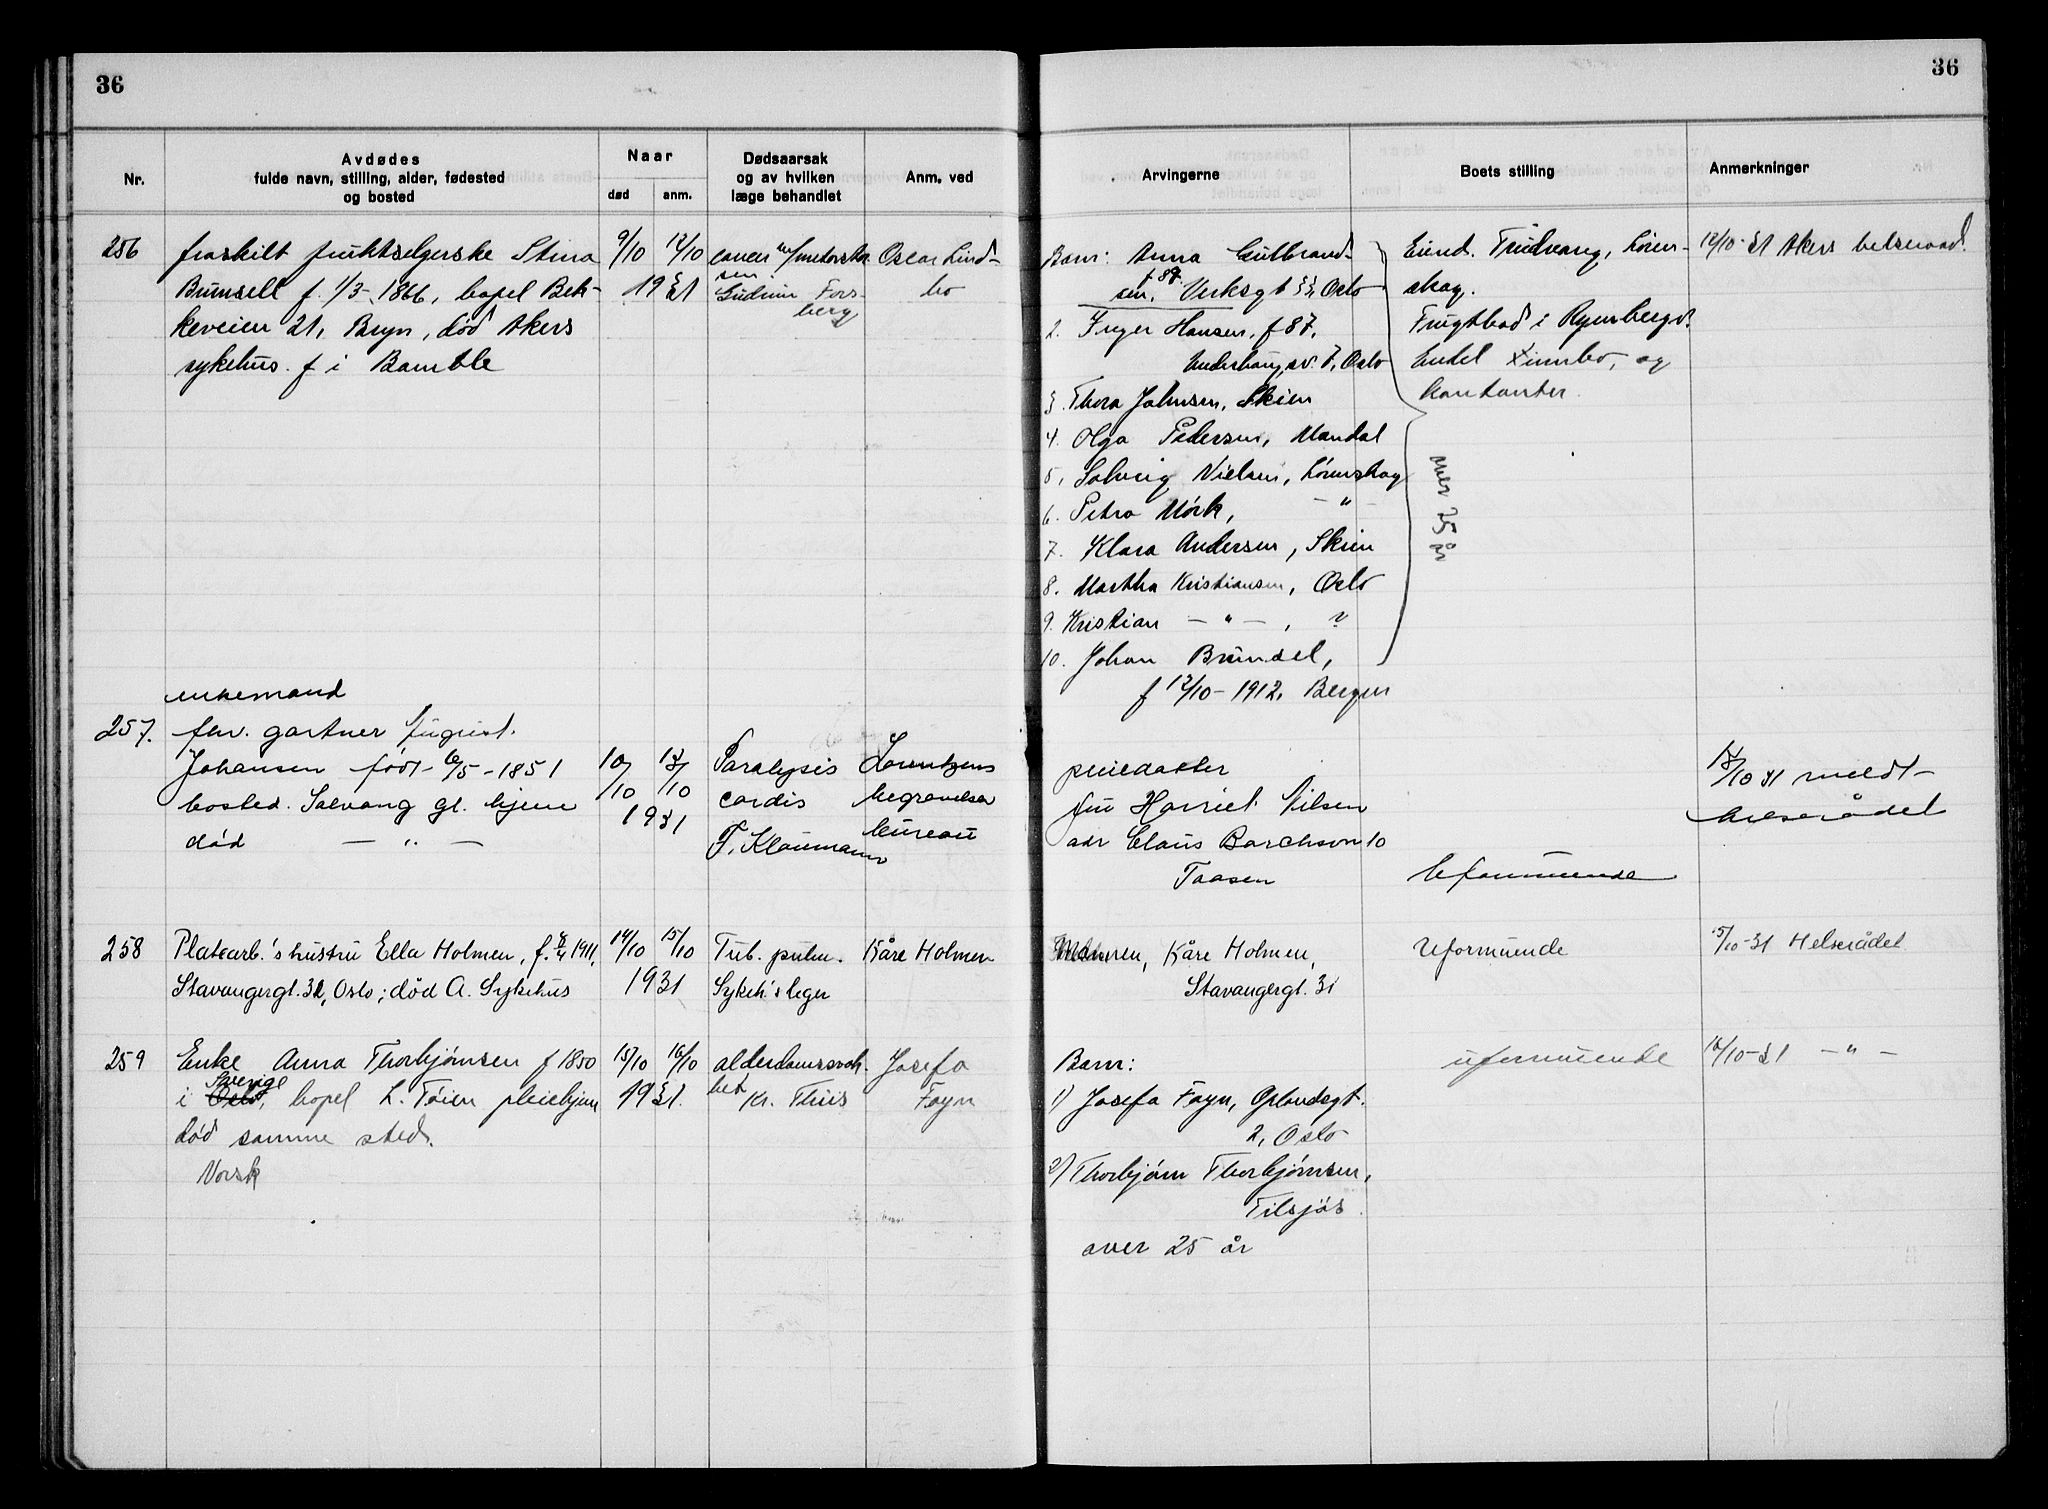 36
36
Nr.
Avdødes
fulde navn, stilling, alder, fødested
og bosted
Naar
død
anm.
Dødsaarsak
og av hvilken
læge behandlet
Anm. ved
Arvingerne
Boets stilling
Anmerkninger
256
fraskilt fruktselgerske Stina
Brunsell f. 1/3-1866, bopel Bek-
keveien 21, Bryn, død Akers
sykehus. f i Bamble
9/10 12/10
1931
cancer
Gudrun Fors-
berg
Oscar Lind-
bo
Barn: Anna Gulbrand-
sen, f 89 Verksgt 33, Oslo
2. Inger Hansen, f 87,
7, Oslo
3. Thora Johnsen, Skien
4. Olga Pedersen, Mandal
5. Solveig Nielsen, Lörenskog
6. Petra Mörk, — " —
7. Klara Andersen, Skien
8. Martha Kristiansen, Oslo
9. Kristian — " — , ?
10. Johan Brunsel,
f 12/10-1912, Bergen
over 25 år
Eiend. Trudvang, Lören-
skog.
Frugtbod i Rynbergv.
Endel innbo, og
kontanter.
12/10-31 Akers helseraad.
257.
enkemand
fhv. gartner August
Johansen født 6/5-1851
bosted. Solvang gl. hjem
død — " —
10/10 13/10
1931
Paralysis
cordis
F. Klaumann
Lorentzens
begravelses
bureau
pleiedatter
fru Harriet Nilsen
adr Claus Borchson 10
Taasen
Uformuende
13/10 31 meldt
helserådet
258
Platearb.'s hustru Ella Holmen, f. 8/4 1911,
Stavangergt. 31, Oslo; død A. Sykehus
14/10 15/10
1931
Tub. pulm.
Sykeh's leger
Kåre Holmen
Mannen, Kåre Holmen,
Stavangergt. 31
Uformuende
15/10-31 Helserådet
259
Enke Anna Thorbjörnsen f 1850
Sverige
i Oslo, bopel L. Töien pleiehjem
död samme sted.
Norsk
15/10 16/10
1931.
alderdomssvak-
het
Kr. Thiis
Josefa
Foyn
Barn:
1) Josefa Foyn, Oplandsgt.
2, Oslo
2) Thorbjörn Thorbjörnsen,
Eilsjös
over 25 år
uformuende
16/10-31 — " —